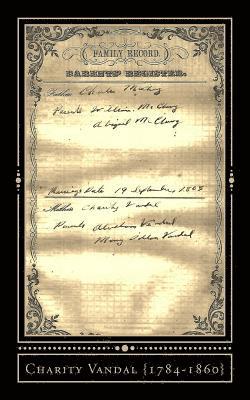 FAMILY RECORD.
PARENTS' REGISTER.
Father Charles McClung
Parents William McClung
Abigail McClung
Marriage Date 19 September, 1808
Mother Charity Vandal
Parents Abraham Vandal
Mary Vandal
Charity Vandal {1784-1860}